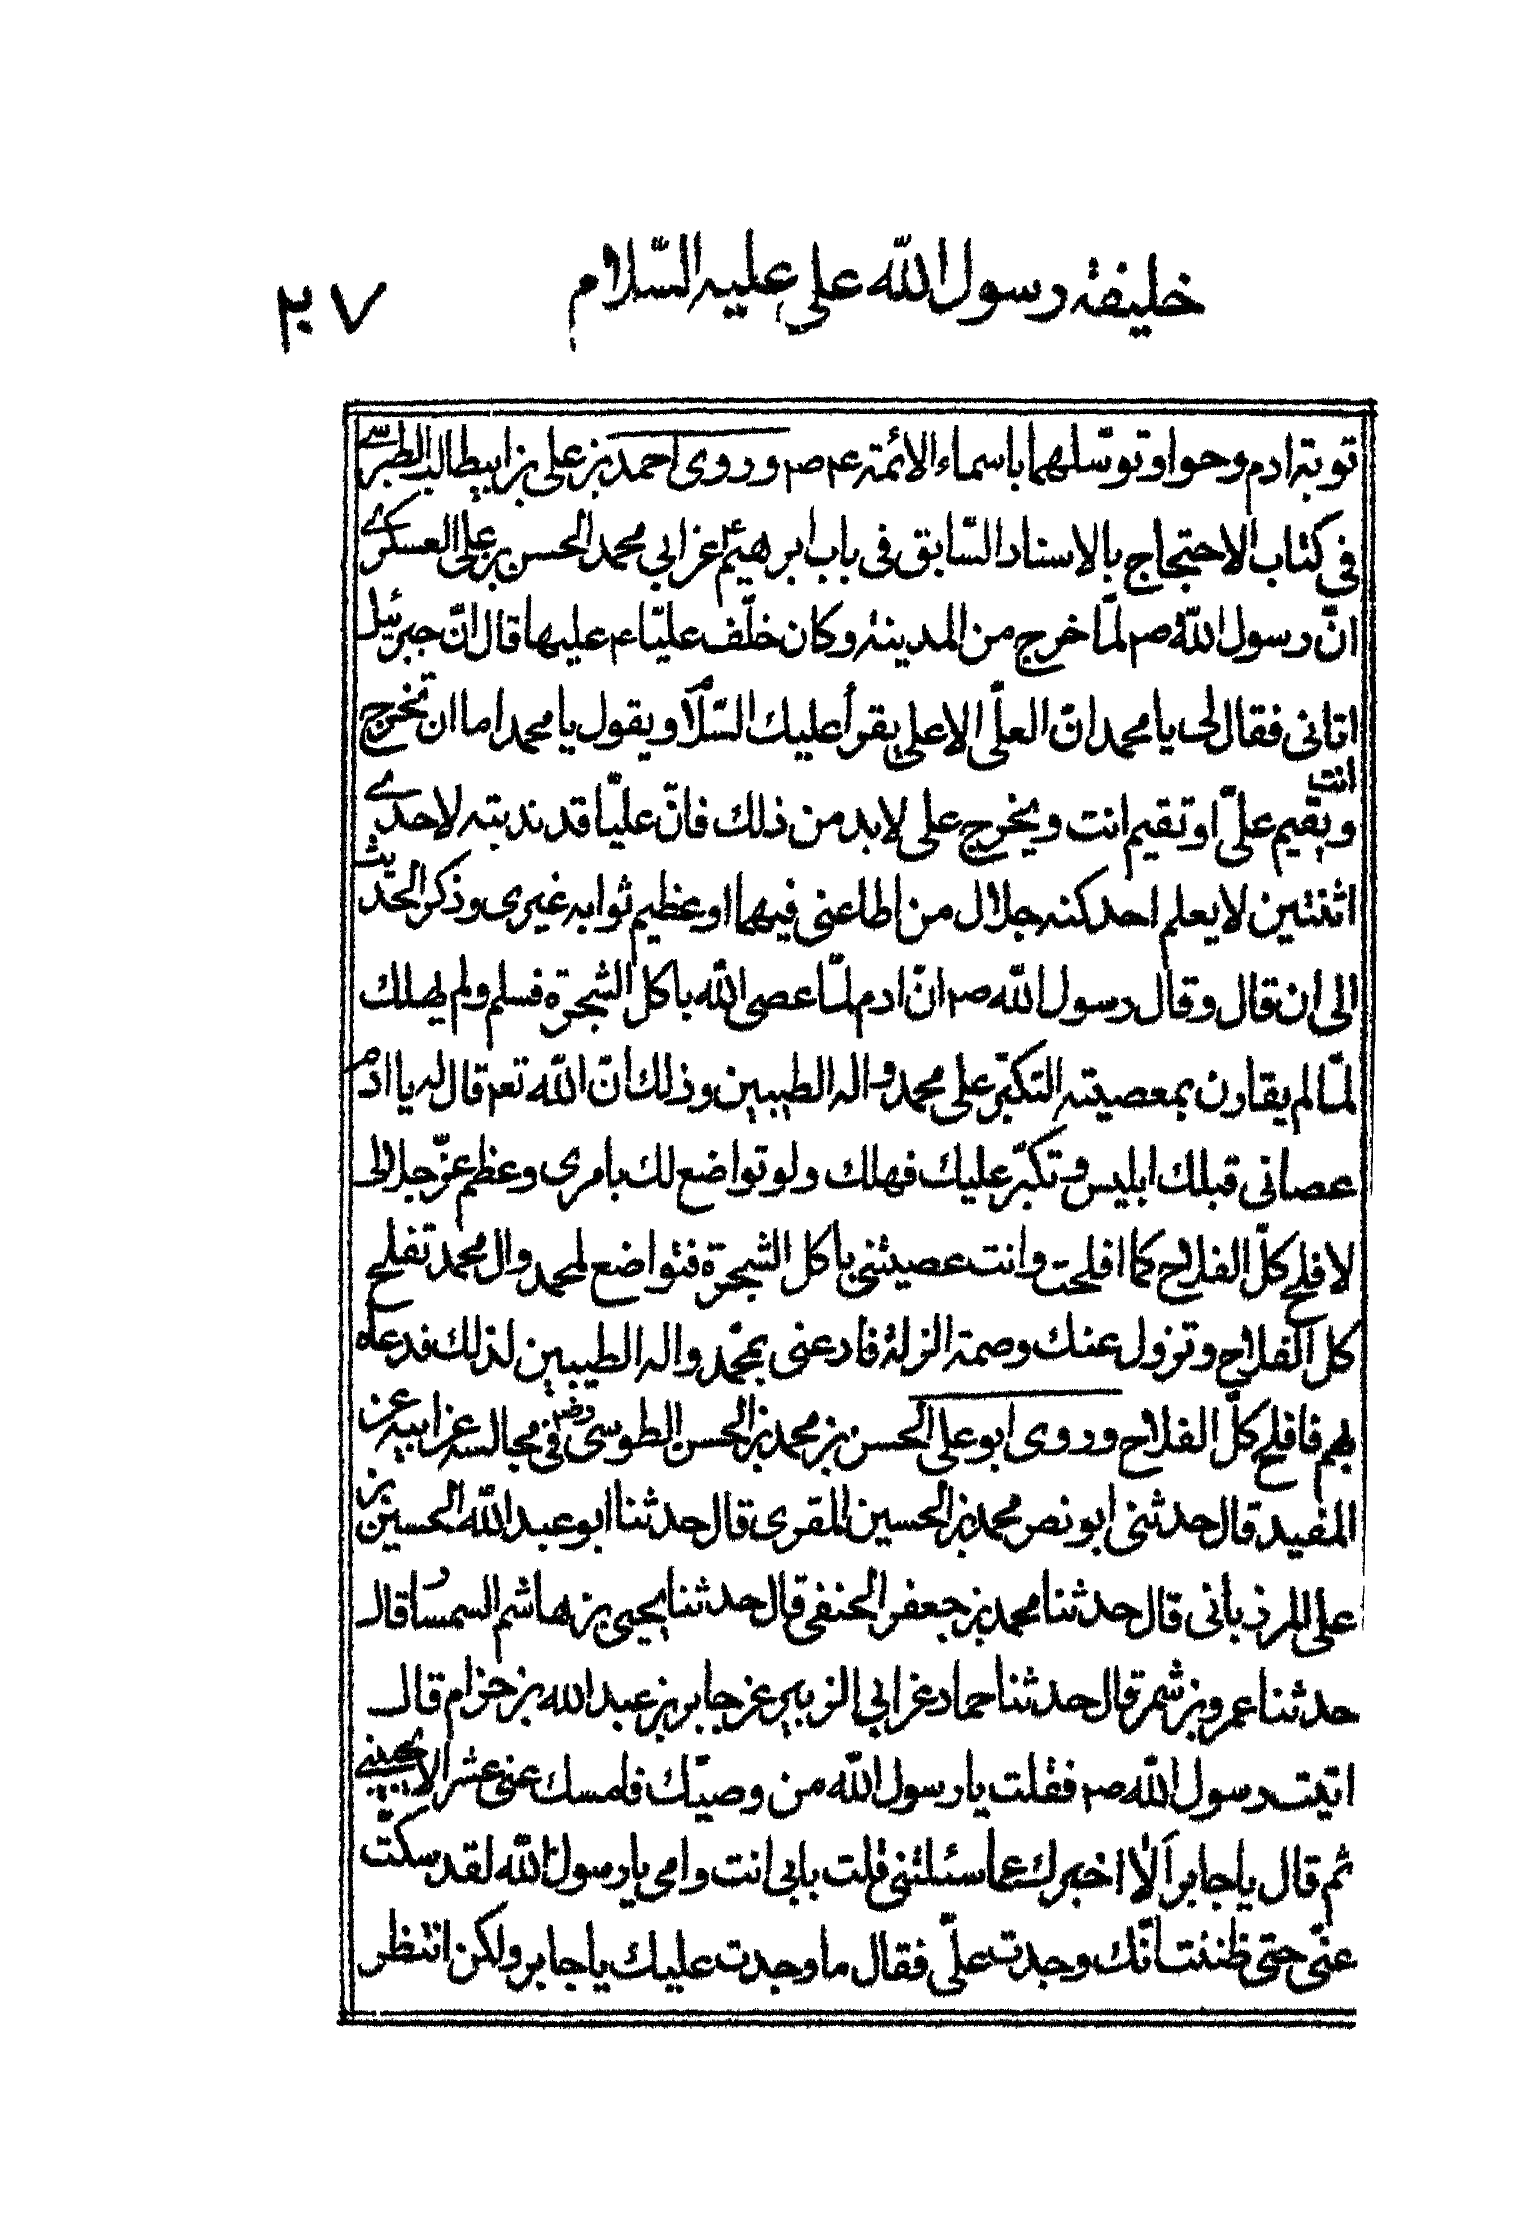 خليفة رسول الله علی عليه السّلام
٢٧
توبة ادم وحوا وتوسّلهما باسماء الائمّة ع م ص م وروی احمد بن علی بن ابيطالب الطبرسّے
فی كتاب الاحتجاج بالاسناد السّابق فی باب ابرهيم ع عن ابي محمد الحسن بن علی العسكرے
انّ رسول اللّه ص م لمّا خرج من المدينة وكان خلّف عليّا ع م عليها قال انّ جبرئيل
اتانی فقال لی يا محمد انّ العلّی الاعلی يقرأ عليك السّلام ويقول يا محمد اما ان تخرج
انت
ويقيم علیّ او تقيم انت ويخرج علی لابد من ذلك فانّ عليّا قد ندبته لاحدے
اثنتين لا يعلم احد كنه جلال من اطاعنی فيهما وعظيم ثوابه غيری وذكر الحديث
الی ان قال وقال رسول اللّه ص م انّ ادم لمّا عصی اللّه باكل الشجرة فسلم ولم يهلك
لمّا لم يقارن بمعصيته التكبّر علی محمد واله الطيبين وذلك انّ اللّه تع م قال له يا ادم
عصانی قبلك ابليس وتكبّر عليك فهلك ولو تواضع لك بامری وعظم عزّ جلالی
لافلح كلّ الفلاح كما افلحت وانت عصيتنی باكل الشجرة فتواضع لمحمد وال محمد تفلح
كل الفلاح وتزول عنك وصمة الزلة فادعنی بمحمد واله الطيبين لذلك فدعاه
بهم فافلح كلّ الفلاح وروی ابو علی الحسن بن محمد بن الحسن الطوسی رض فی مجالسه عن ابيه عن
المفيد قال حدثنی ابو نصر محمد بن الحسين المقری قال حدثنا ابو عبد اللّه الحسين بن
علی المرزبانی قال حدثنا محمد بن جعفر الحنفی قال حدثنا يحيی بن هاشم السمسار قال
حدثنا عمرو بن شمر قال حدثنا حماد عن ابي الزبير عن جابر بن عبد اللّه بن حزام قال
اتيت رسول اللّه ص م فقلت يا رسول اللّه من وصيّك فامسك عنی عشرا لا يجيبنی
ثم قال يا جابر الا اخبرك عما سئلتنی قلت بابی انت وامی يا رسول اللّه لقد سكتّ
عنّی حتی ظننت انّك وجدت علیّ فقال ما وجدت عليك يا جابر ولكن انتظر